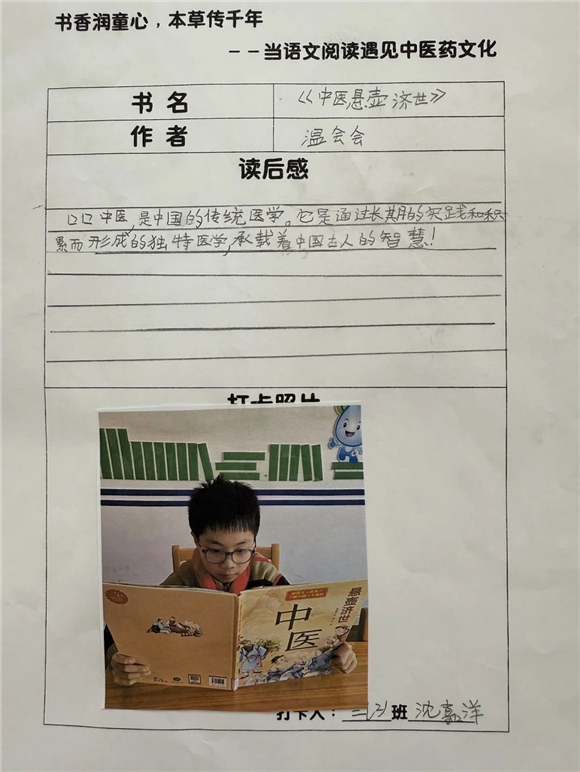 书香润童心，本草传千年
－－当语文阅读遇见中医药文化
书名 《中医悬壶济世》
作者 温会会
读后感
口口中医,是中国的传统医学。它是通过长期的实践和积
累而形成的独特医学,承载着中国古人的智慧!
打卡照片
悬壶济世
中医
打卡人：三(3)班 沈嘉洋